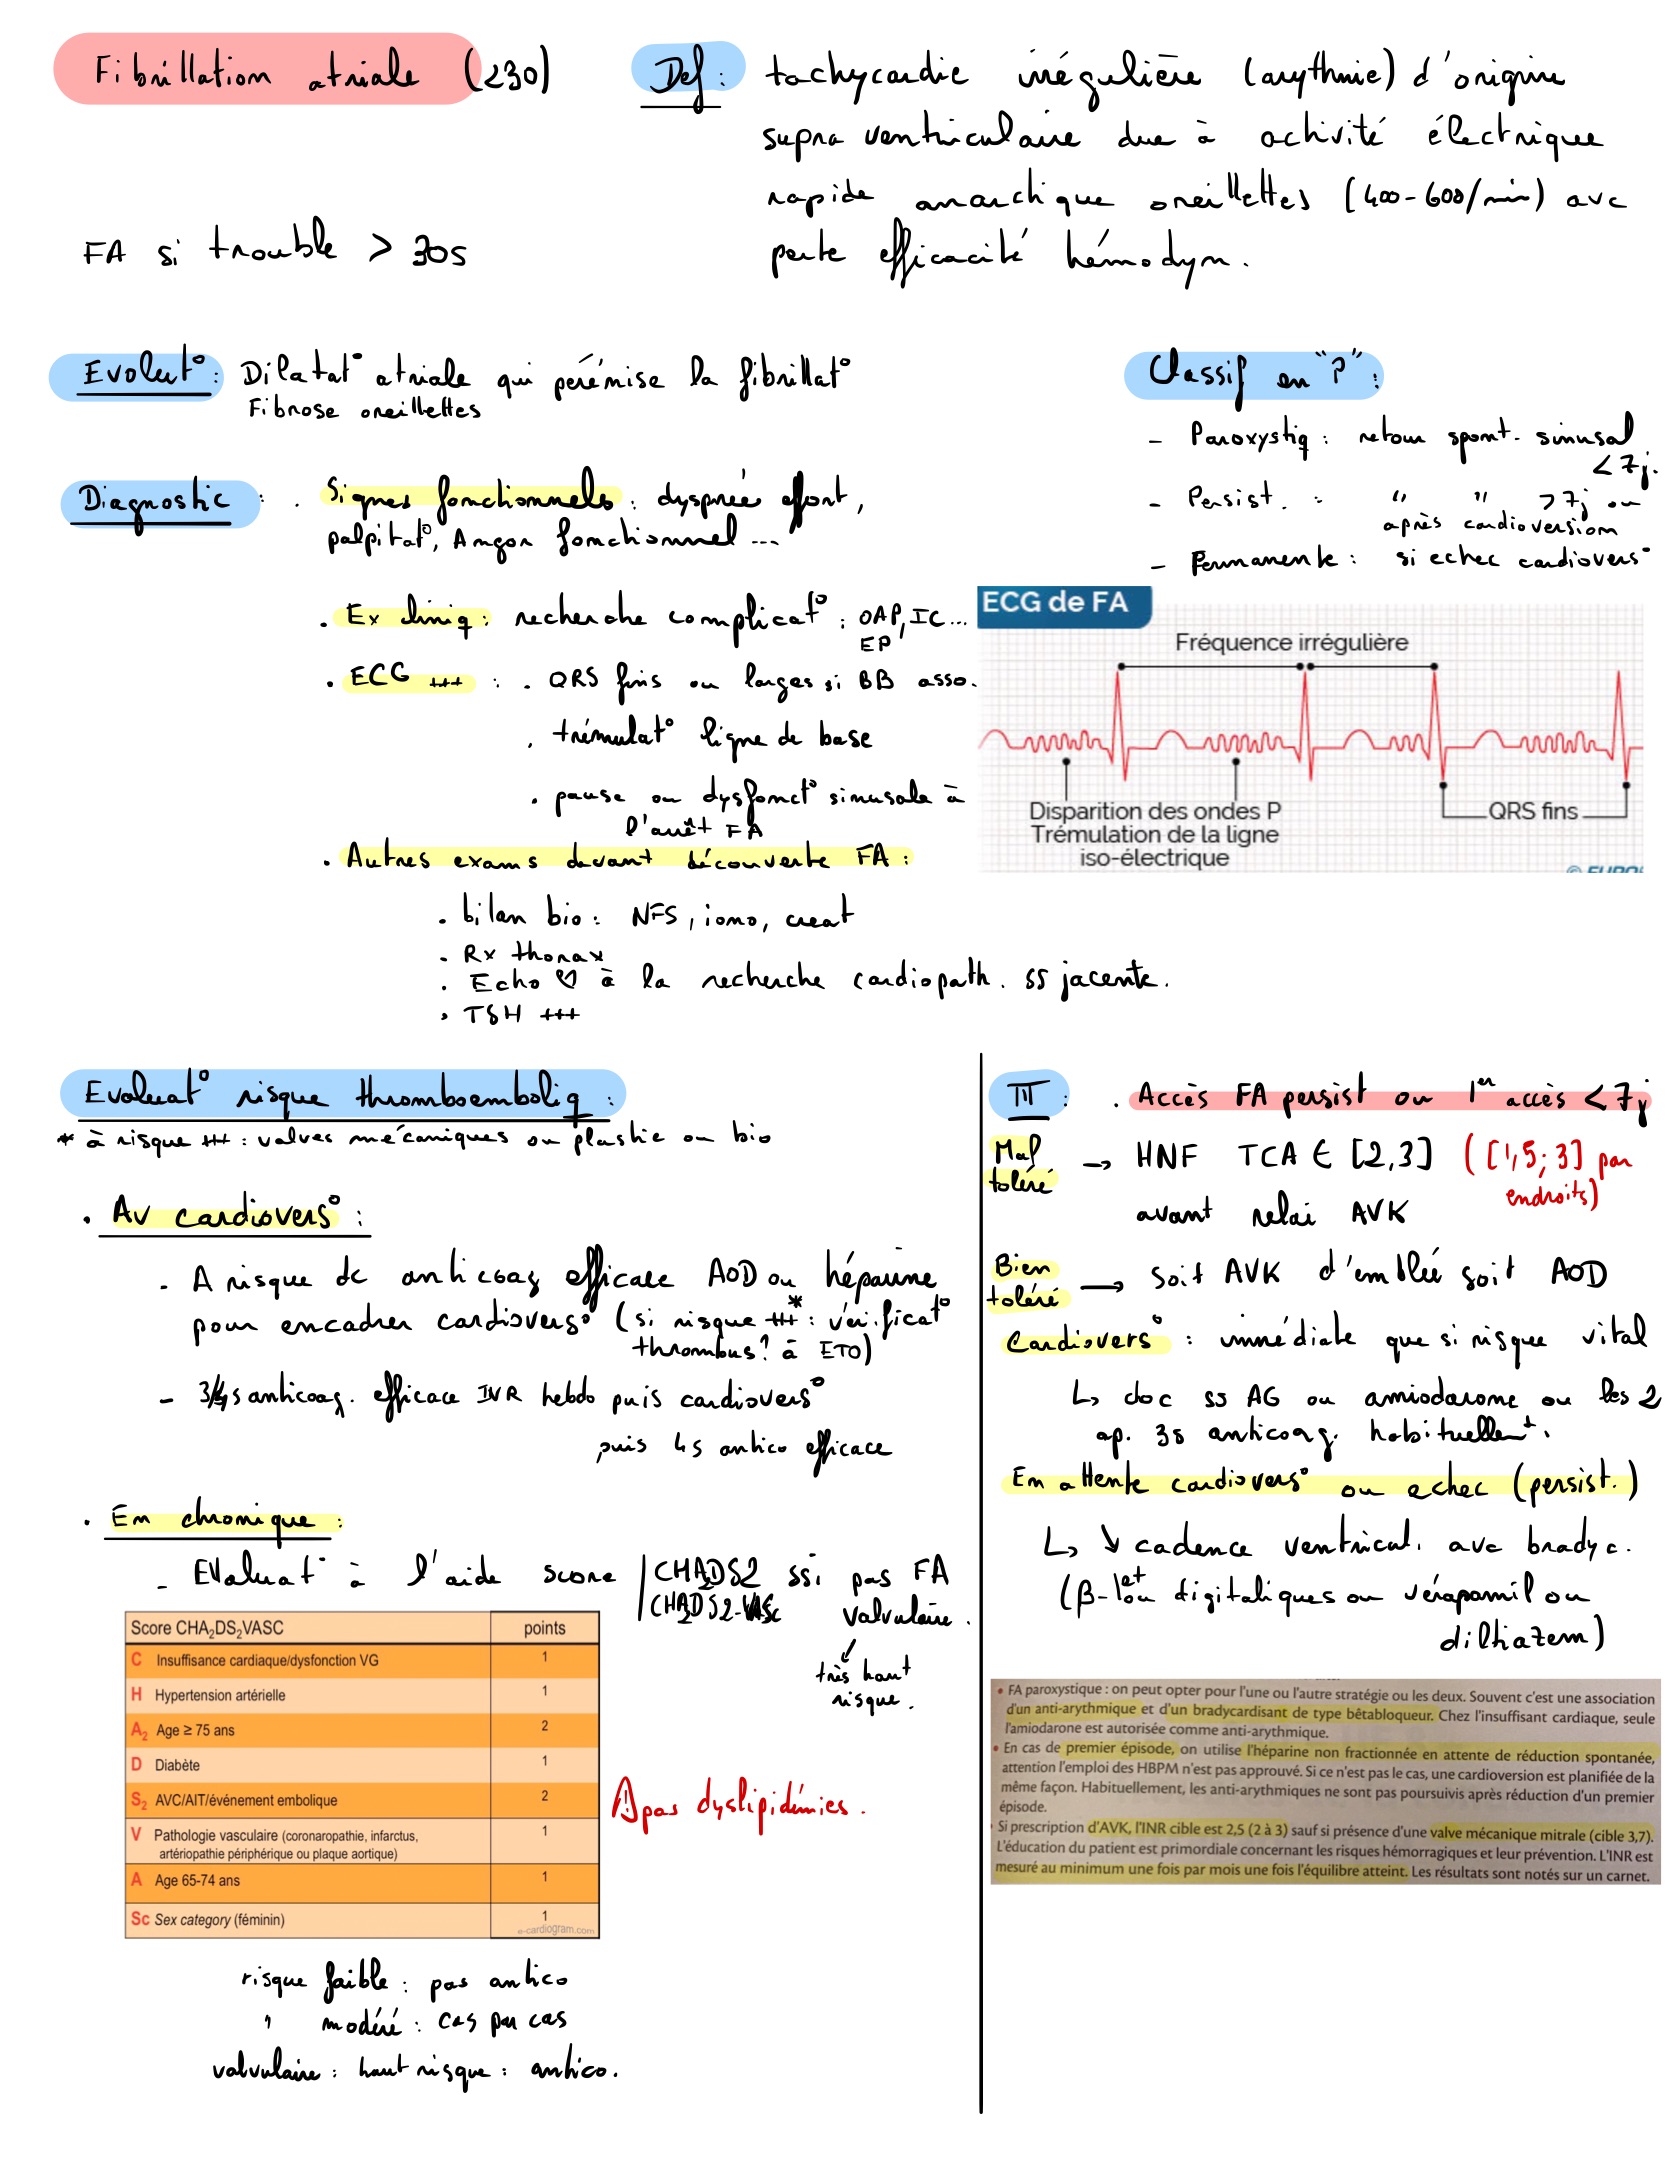 Fibrillation atriale (230)
Def : tachycardie irrégulière (arythmie) d'origine
supra ventriculaire due à activité électrique
rapide anarchique oreillettes (400-600/min) avc
perte efficacité hémodyn.
FA si trouble > 30s
Evolut° : Dilatat° atriale qui pérémise la fibrillat°
Fibrose oreillettes
Classif en "P" :
- Paroxystiq : retour spont. sinusal
< 7j.
- Persist. : " " > 7j ou
après cardioversion
- Permanente : si echec cardiovers°
Diagnostic : . Signes fonctionnels : dyspnée effort,
palpitat°, Angor fonctionnel ...
. Ex cliniq : recherche complicat° : OAP, IC...
EP
. ECG +++ : . QRS fins ou larges si BB asso.
. trémulat° ligne de base
. pause ou dysfonct° sinusale à
l'arrêt FA
. Autres exams devant découverte FA :
. bilan bio : NFS, iono, creat
. Rx thorax
. Echo ♡ à la recherche cardiopath. ss jacente.
. TSH +++
ECG de FA
Fréquence irrégulière
Disparition des ondes P
Trémulation de la ligne
iso-électrique
QRS fins
Evaluat° risque thromboemboliq :
* à risque +++ : valves mécaniques ou plastie ou bio
. Av cardiovers° :
- A risque de anticoag efficace AOD ou héparine
pour encadrer cardiovers° (si risque +++* : vérificat°
thrombus? à ETO)
- 3/4s anticoag. efficace INR hebdo puis cardiovers°
puis 4s antico efficace
. En chronique :
- Evaluat° à l'aide score | CHADS2 ssi pas FA
CHA2DS2-VASc valvulaire.
très haut
risque.
Score CHA2DS2VASC points
C Insuffisance cardiaque/dysfonction VG 1
H Hypertension artérielle 1
A2 Age ≥ 75 ans 2
D Diabète 1
S2 AVC/AIT/événement embolique 2
V Pathologie vasculaire (coronaropathie, infarctus,
artériopathie périphérique ou plaque aortique) 1
A Age 65-74 ans 1
Sc Sex category (féminin) 1
e-cardiogram.com
⚠ pas dyslipidémies.
risque faible : pas antico
" modéré : cas par cas
valvulaire : haut risque : antico.
TTT : . Accès FA persist ou 1er accès < 7j
Mal toléré → HNF TCA ∈ [2,3] ([1,5; 3] par
endroits)
avant relai AVK
Bien toléré → soit AVK d'emblée soit AOD
Cardiovers° : immédiate que si risque vital
↳ choc ss AG ou amiodarone ou les 2
ap. 3s anticoag. habituellemt.
En attente cardiovers° ou echec (persist.)
↳ ↘ cadence ventricul. avc bradyc.
(β-- et/ou digitaliques ou vérapamil ou
diltiazem)
• FA paroxystique : on peut opter pour l'une ou l'autre stratégie ou les deux. Souvent c'est une association
d'un anti-arythmique et d'un bradycardisant de type bêtabloqueur. Chez l'insuffisant cardiaque, seule
l'amiodarone est autorisée comme anti-arythmique.
• En cas de premier épisode, on utilise l'héparine non fractionnée en attente de réduction spontanée,
attention l'emploi des HBPM n'est pas approuvé. Si ce n'est pas le cas, une cardioversion est planifiée de la
même façon. Habituellement, les anti-arythmiques ne sont pas poursuivis après réduction d'un premier
épisode.
Si prescription d'AVK, l'INR cible est 2,5 (2 à 3) sauf si présence d'une valve mécanique mitrale (cible 3,7).
L'éducation du patient est primordiale concernant les risques hémorragiques et leur prévention. L'INR est
mesuré au minimum une fois par mois une fois l'équilibre atteint. Les résultats sont notés sur un carnet.